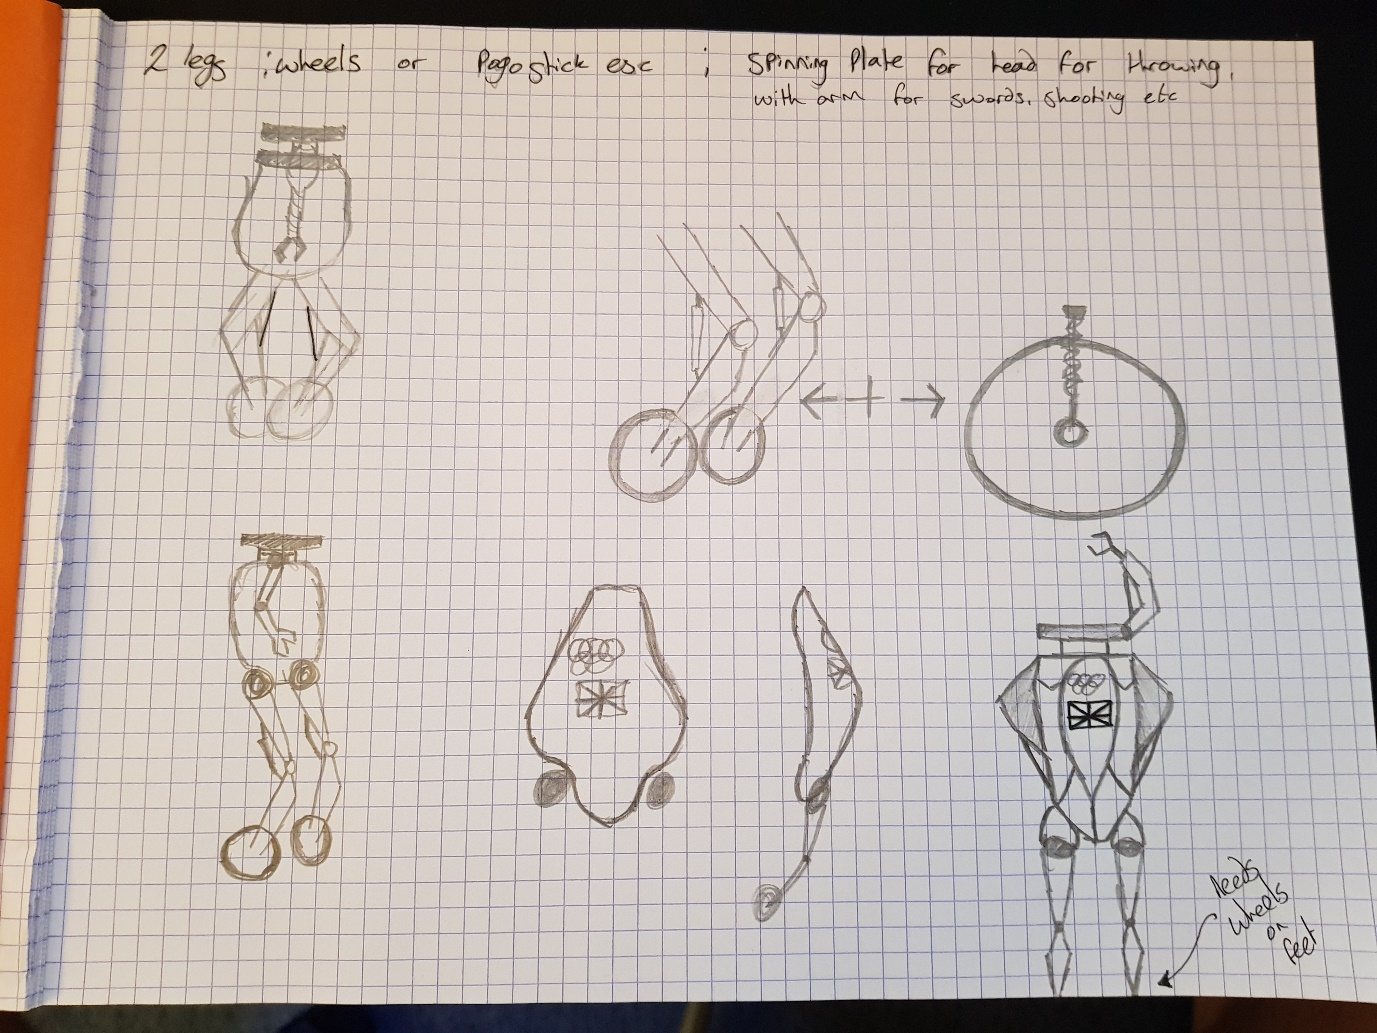 2 legs ; wheels or Pogostick esc ; Spinning Plate for head for throwing,
with arm for swords, shooting etc
Needs
wheels
on
feet